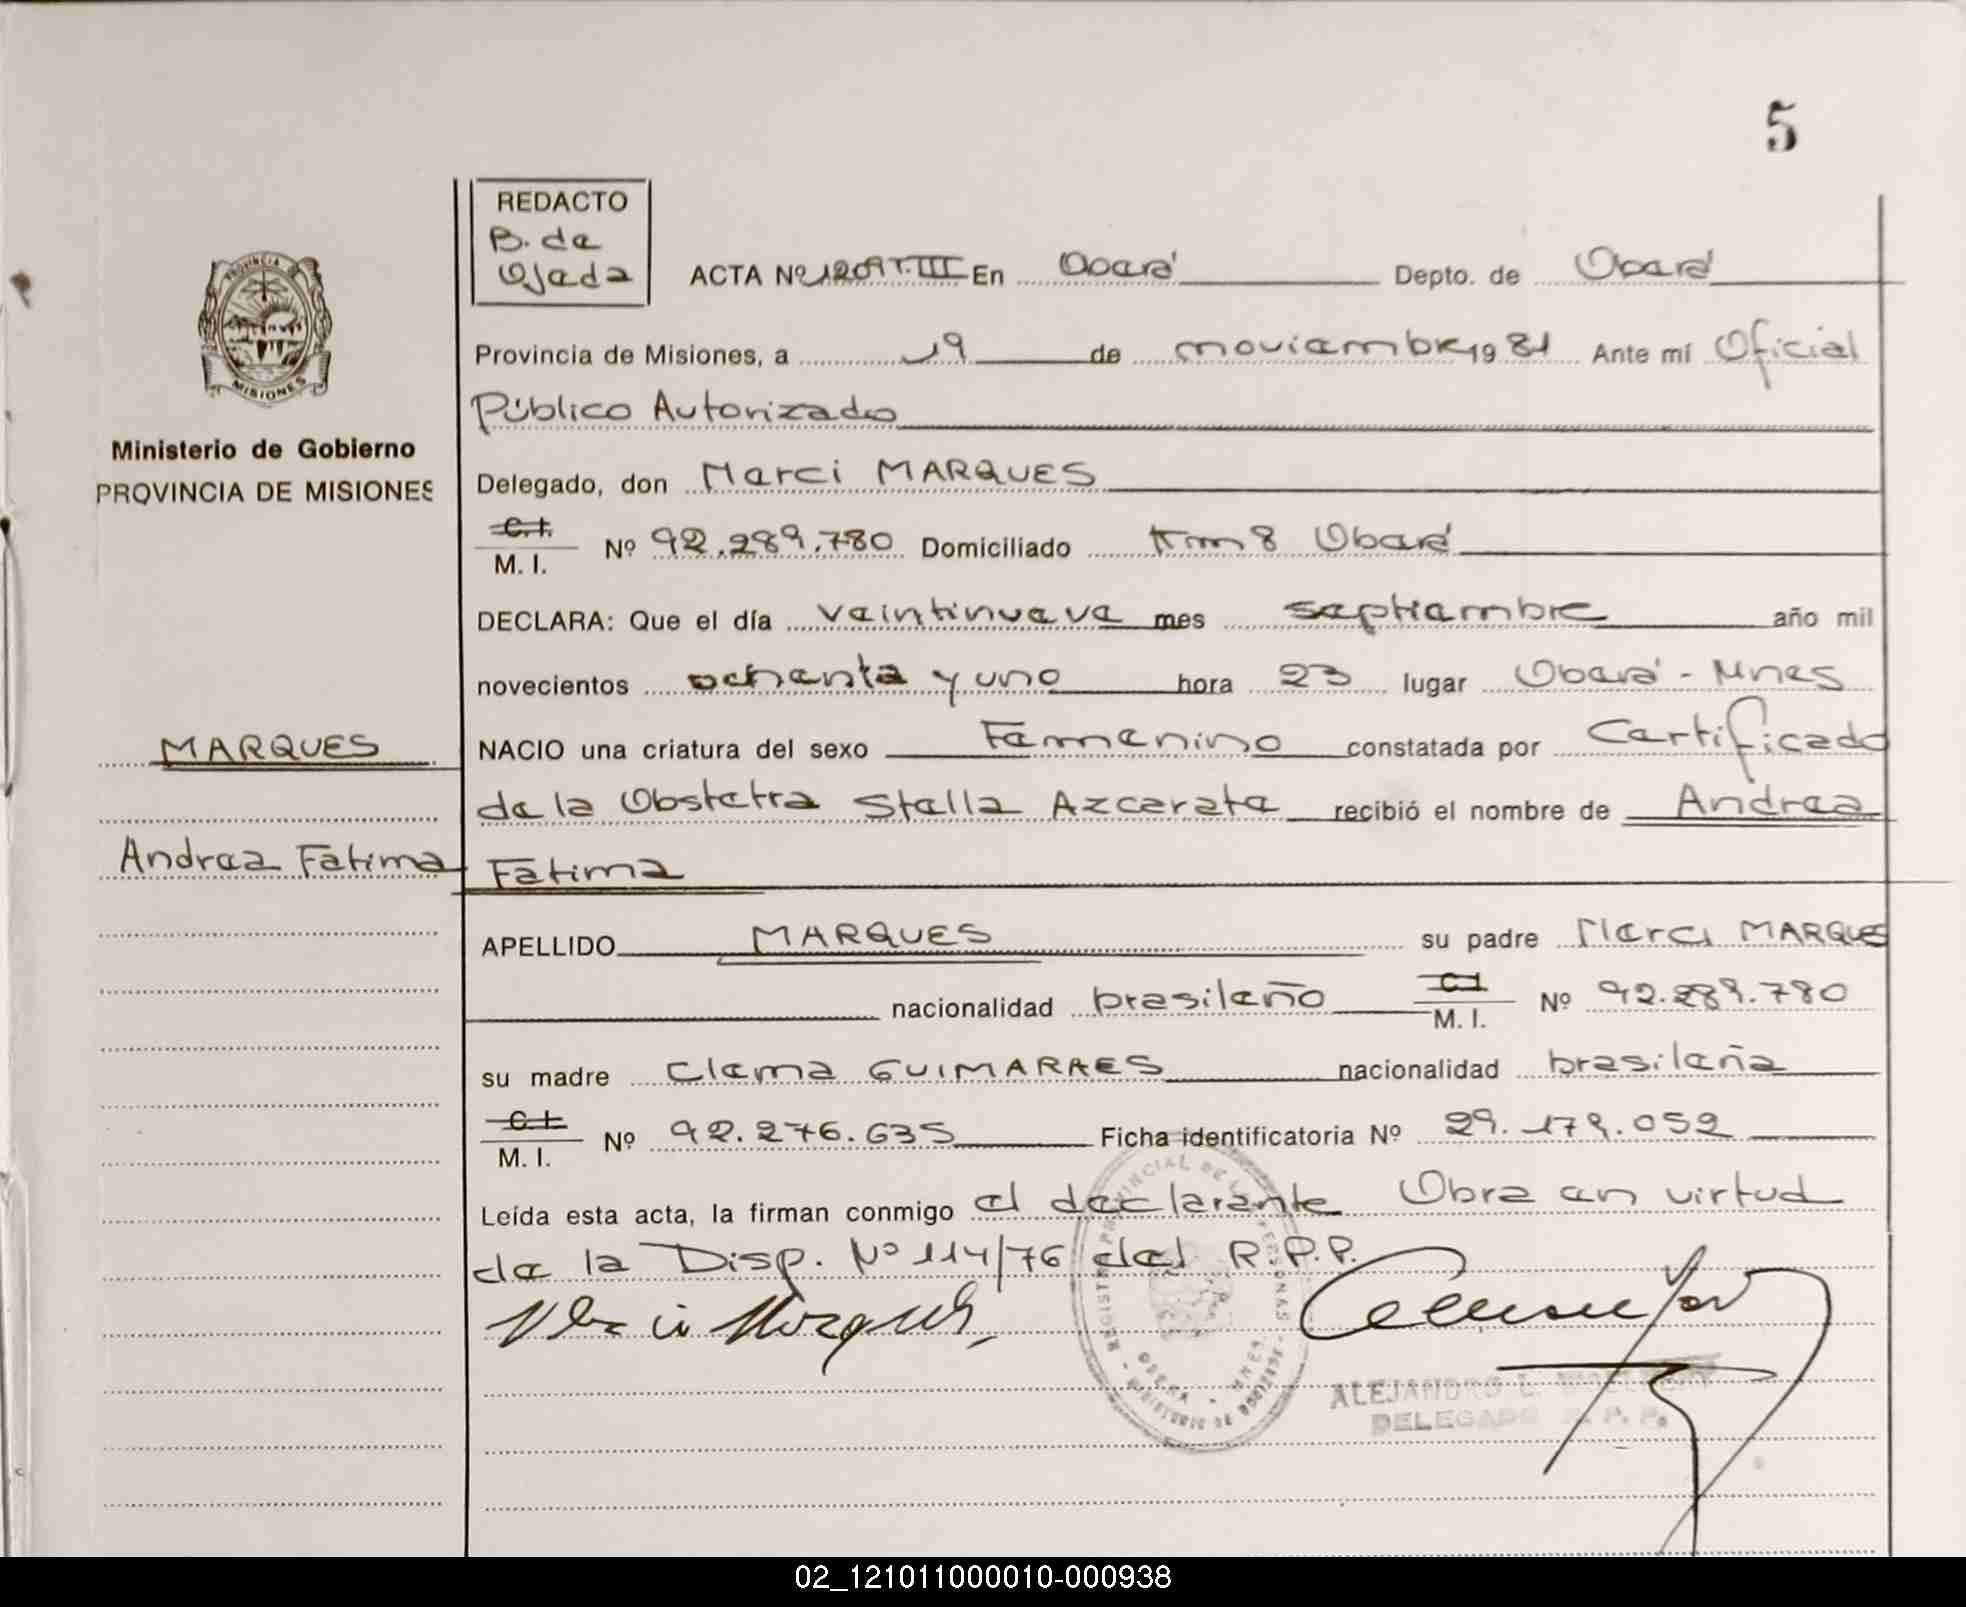 5
REDACTO
B. de
Ojeda
ACTA Nº 1209 T.III En Oberá Depto. de Oberá
Provincia de Misiones, a 19 de noviembre 19 81 Ante mí Oficial
Público Autorizado
Ministerio de Gobierno
PROVINCIA DE MISIONES
Delegado, don Marci MARQUES
C.I.
M. I. Nº 92.289.780 Domiciliado Km 8 Oberá
DECLARA: Que el día veintinueve mes septiembre año mil
novecientos ochenta y uno hora 23 lugar Oberá - Mnes
MARQUES
NACIO una criatura del sexo Femenino constatada por Certificado
de la Obstetra Stella Azcarate recibió el nombre de Andrea
Andrea Fatima
Fatima
APELLIDO MARQUES su padre Marci MARQUES
nacionalidad brasileño C.I. M. I. Nº 92.289.780
su madre Clema GUIMARAES nacionalidad brasileña
C.I.
M. I. Nº 92.276.635 Ficha identificatoria Nº 29.179.052
Leída esta acta, la firman conmigo el declarante Obra en virtud
de la Disp. Nº 114/76 del R.P.P.
ALEJANDRO
DELEGADO R. P. P.
02_121011000010-000938